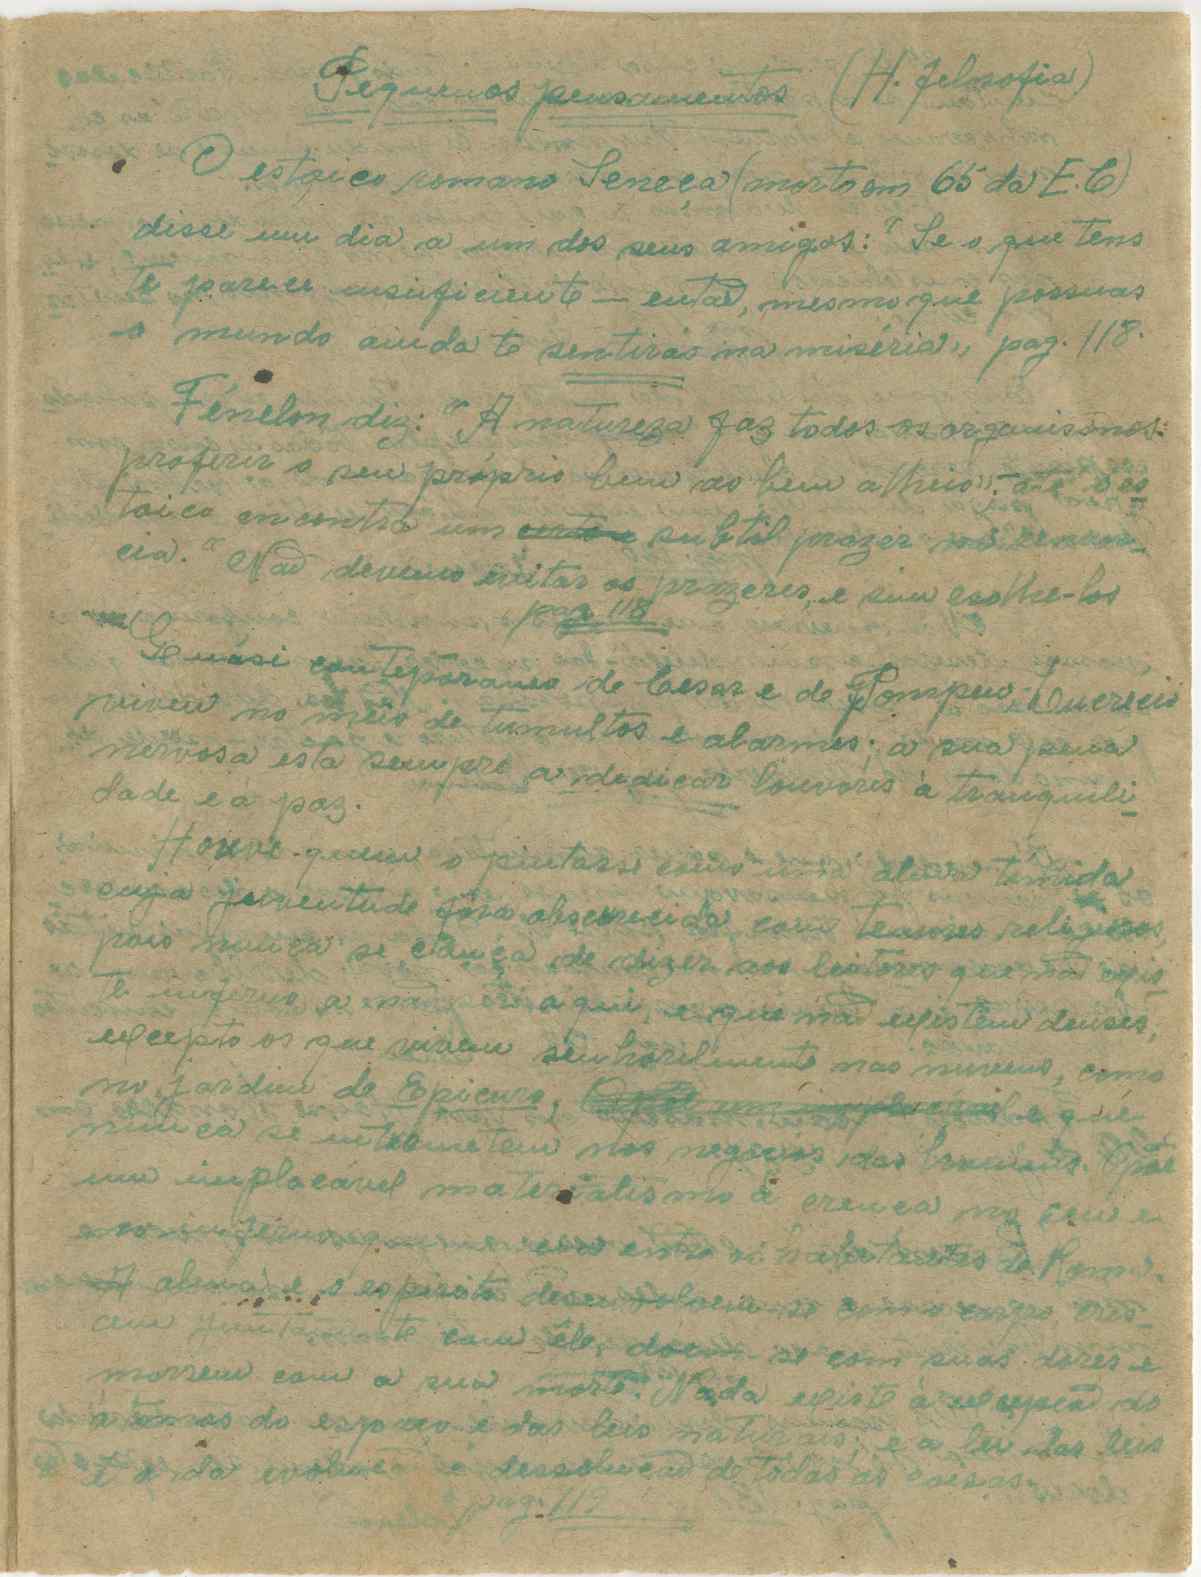 Pequenos pensamentos (H. filosofia)
O estoico romano Seneca (morto em 65 da E.C)
disse um dia a um dos seus amigos: "Se o que tens
te parece insuficiente — então, mesmo que possuas
o mundo ainda te sentirás na miséria", pag. 118.
Fénelon diz: "A natureza faz todos os organismos
preferir o seu próprio bem ao bem alheio": até o es-
toico encontra um subtil prazer na renún-
cia." Não devemos evitar os prazeres, e sim escolhe-los
pag 118
Quási contemporaneo de Cesar e de Pompeu, Lucrecio
viveu no meio de tumultos e alarmes; a sua pena
nervosa está sempre a dedicar louvores á tranquili-
dade e á paz.
Houve quem o pintasse como uma alma tímida
cuja juventude fôra obscurecida com temores religiosos,
pois nunca se cança de dizer aos leitores que não exis-
te inferno a não ser aqui, e que não existem deuses,
excepto os que vivem senhorilmente nas nuvens, como
no jardim de Epicuro, e que
nunca se intrometem nos negocios dos homens. Opõe
um implacável materialismo á crença no ceu e
no inferno entre os habitantes de Roma.
A alma e o espirito desenvolvem-se com o corpo, cres-
cem juntamente com êle, doem-se com suas dores e
morrem com a sua morte. Nada existe á excepção do
átomos do espaço e das leis naturais; e a lei das leis
é a da evolução e dessolução de todas as coisas.
pag. 119